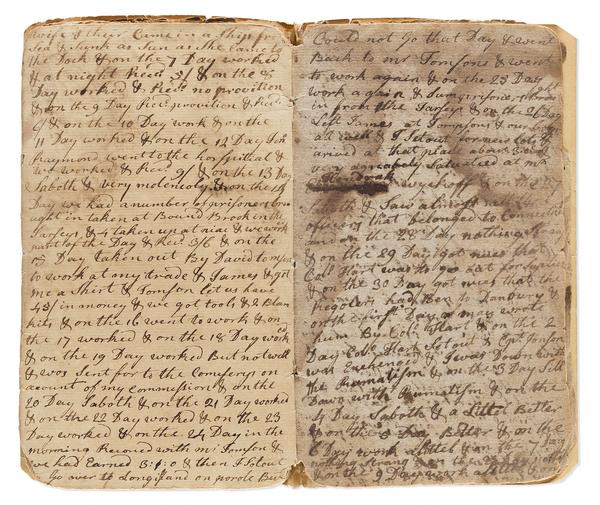 wife & their Came in a Ship fr
Sea & Sunk as Sun as She Came to
the Dock & on the 7 Day worked
& at night Recd 3/ & on the 8
Day worked & Recd no provition
& on the 9 Day Recd provition & Recd
9/ & on the 10 Day work & on the
11 Day worked & on the 12 Day
Raymond went to the hospithal &
we worked & Recd 9/ & on the 13 Day
Saboth & very molencoly & on the 14
Day we had a number of prisoners bro
ught in taken at Bound Brook in the
Jarseys & 4 taken up at niac & we work
part of the Day & Recd 3/6 & on the
15 Day taken out By David tomson
to work at my trade & James & got
me a Shirt & Tomson let us have
48/ in money & we got tools & 2 Blan
kits & on the 16 went to work & on
the 17 worked & on the 18 Day worked
& on the 19 Day worked But not well
& was Sent for to the Comiserys on
account of my Commission & on the
20 Day Saboth & on the 21 Day worked
& on the 22 Day worked & on the 23
Day worked & on the 24 Day in the
morning Reconed with mr Tomson &
we had Earned 3:1:0 & then I Set out
Go over to Long island on parole But
Could not Go that Day & went
Back to mr Tomsons & went
to work again & on the 25 Day
work again & Sum prisoners
in from the Jarseys & on the 26 Day
Left James at Tompsons & our
all well & I Set out for
arived at that place about
very agreably Saluted at mr
wyckoff & on the 27
Saboth & Saw almost all the
officers that belonged to Connecticut
and on the 28 Day nothing
& on the 29 Day got nues that
Coll Hart was to go
& on the 30 Day got nues that the
Regulers had Ben to Danbury &
on the first Day of may wrote
hum By Coll Hart & on the 2
Day Coll Hart Set out & Cpt Jonson
was Exchanged & I was Down with
the Rumatism & on the 3 Day Still
Down with Rumatism & on the
4 Day Saboth & a Littel Better
& on the 5 Day Better & on the
6 Day work a littel & on the 7 Day
nothing Strang & on the 8 Day
& on the 9 Day work a littel & on